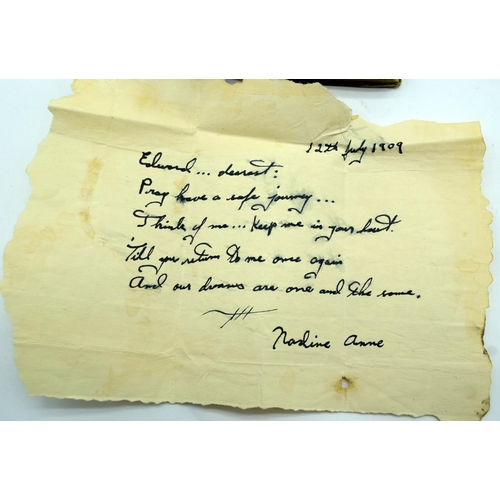 12th July 1809
Edward... dearest:
Pray have a safe journey...
Think of me... Keep me in your heart.
'Till you return to me once again
And our dreams are one and the same.
Nadine Anne